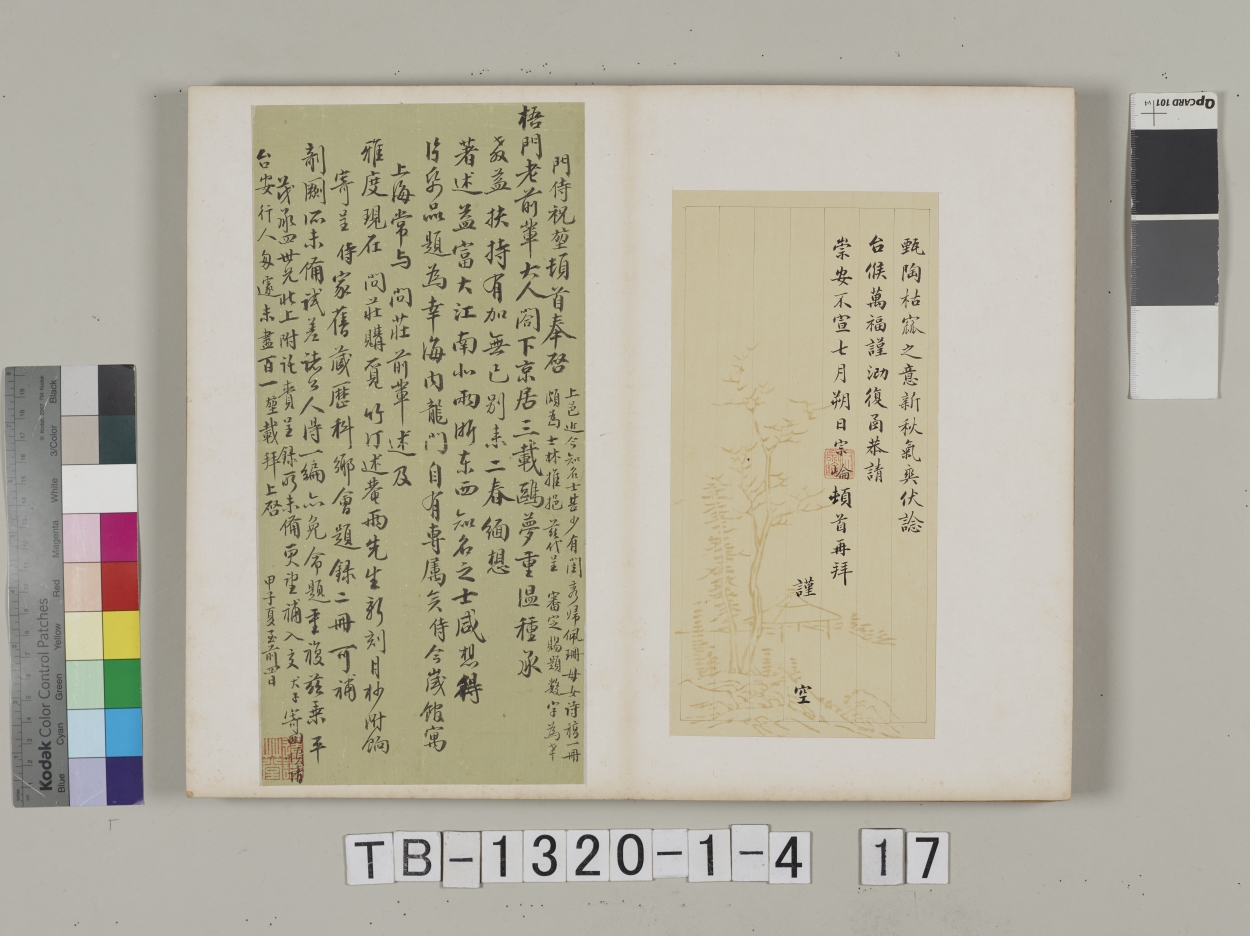 甄陶枯寂之意新秋氣爽伏諗
台候萬福謹泐復函恭請
崇安不宣七月朔日宗崘頓首再拜
謹
空
門侍祝堃頓首奉啓
梧門老前輩大人閣下京居三載鷗夢重溫種承
教益扶持有加無已別來二春緬想
著述益富大江南北兩浙東西知名之士咸想得
片帋品題為幸海內龍門自有專属矣侍今歲館寓
上海常与 問莊前輩述及
雅度現在 問莊購覓竹汀述菴兩先生新刻月杪附餉
寄呈侍家舊蔵歷科鄉會題錄二冊可補
剞劂所未備試差諸公人得一編亦免命題重複茲乗平
茂承四世兄北上附託賫呈錄所未備更望補入交大子寄
台安行人匆遽未盡百一堃載拜上啓
甲子夏至前四日
上邑近今知名士甚少有閨秀歸佩珊母女詩稿一冊
頗為士林推挹茲代呈 審定賜題數字為幸
TB-1320-1-4 17
QpCARD 101 v4
Kodak Color Control Patches
Blue Cyan Green Yellow Red Magenta White 3/Color Black